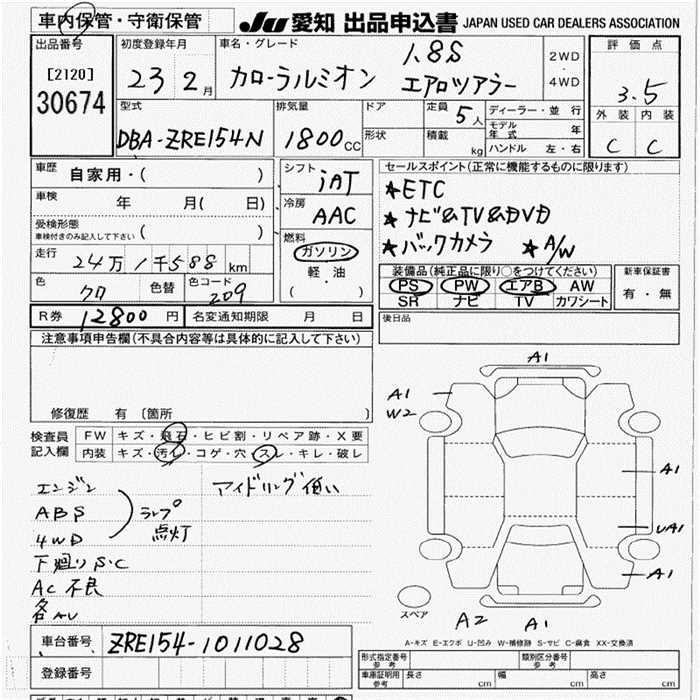 車内保管・守衛保管
JU 愛知 出品申込書 JAPAN USED CAR DEALERS ASSOCIATION
出品番号
[2120]
30674
初度登録年月
23 2月
車名・グレード
カローラルミオン
1.8S
エアロツアラー
2WD
・
4WD
評価点
3.5
外装 内装
C C
型式
DBA-ZRE154N
排気量
1800cc
ドア
形状
定員 5人
積載 kg
ディーラー・並行
モデル年式 年
ハンドル 左・右
車歴 自家用・( )
車検 年 月( 日)
受検形態
車検付きのみ記入して下さい ( )
走行 24万1千588km
色 クロ 色替 色コード 209
シフト iAT
冷房 AAC
燃料
ガソリン
軽油
( ・ )
セールスポイント(正常に機能するものに限ります)
★ETC
★ナビ&TV&DVD
★バックカメラ ★A/W
装備品(純正品に限り○をつけてください)
PS PW エアB AW
SR ナビ TV カワシート
新車保証書
有・無
R券 12800円 名変通知期限 月 日
後日品
注意事項申告欄(不具合内容等は具体的に記入して下さい)
修復歴 有 〔箇所 〕
検査員記入欄
FW キズ・飛石・ヒビ割・リペア跡・X要
内装 キズ・汚レ・コゲ・穴・スレ・キレ・破レ
エンジン
ABS
4WD
ランプ点灯
アイドリング低い
下廻りS・C
AC不良
各AU
A1
A1
W2
A1
UA1
A1
A2 A1
スペア
A-キズ E-エクボ U-凹み W-補修跡 S-サビ C-腐食 XX-交換済
車台番号 ZRE154-1011028
登録番号
形式指定番号
参考
類別区分番号
参考
車庫証明用
参考
長さ cm 幅 cm 高さ cm